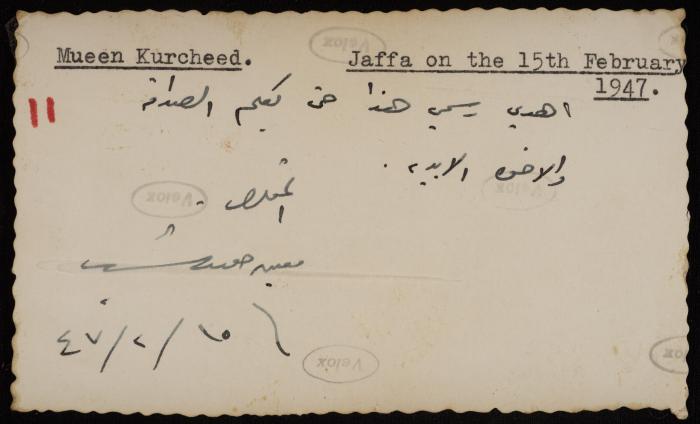 Mueen Kurcheed. Jaffa on the 15th February
1947.
11
اهدي رسمي هذا حتى يعلم الصداقة
والاخوه الابديه .
المخلص
معين خورشيد
٤٧/٢/١٥
Velox
Velox
Velox
Velox